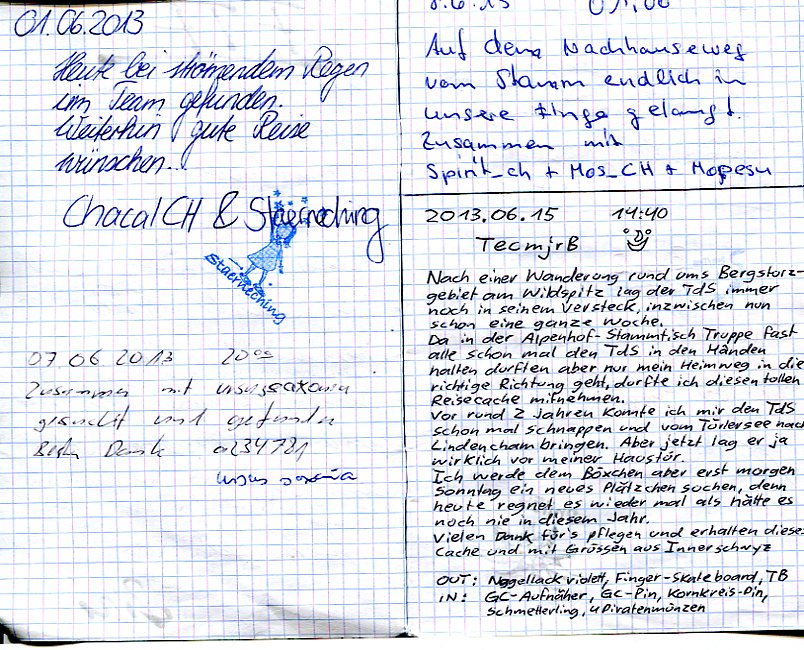 01.06.2013
Heute bei strömendem Regen
im Team gefunden.
Weiterhin gute Reise
wünschen...
ChacalCH & Staerneching
staerneching
07 06 2013 20⁰⁰
Zusammen mit ursussaxonia
gesucht und gefunden
Besten Dank a234781
ursus saxonia
8.6.13
Auf dem Nachhauseweg
vom Stamm endlich in
unsere Finge gelangt.
Zusammen mit
Spirit_ch + Mos_CH + Mopesu
2013.06.15 14:40
TecmjrB
Nach einer Wanderung rund ums Bergsturz-
gebiet am Wildspitz lag der TdS immer
noch in seinem Versteck, inzwischen nun
schon eine ganze Woche.
Da in der Alpenhof-Stammtisch Truppe fast
alle schon mal den TdS in den Händen
halten durften aber nur mein Heimweg in die
richtige Richtung geht, durfte ich diesen tollen
Reisecache mitnehmen.
Vor rund 2 Jahren konnte ich mir den TdS
schon mal schnappen und vom Türlersee nach
Lindencham bringen. Aber jetzt lag er ja
wirklich vor meiner Haustür.
Ich werde dem Böxchen aber erst morgen
Sonntag ein neues Plätzchen suchen, denn
heute regnet es wieder mal als hätte es
noch nie in diesem Jahr.
Vielen Dank für's pflegen und erhalten diese
Cache und mit Grüssen aus Innerschwyz
OUT: Nagellack violett, Finger-Skateboard, TB
IN: GC-Aufnäher, GC-Pin, Kornkreis-Pin,
Schmetterling, 4 Piratenmünzen